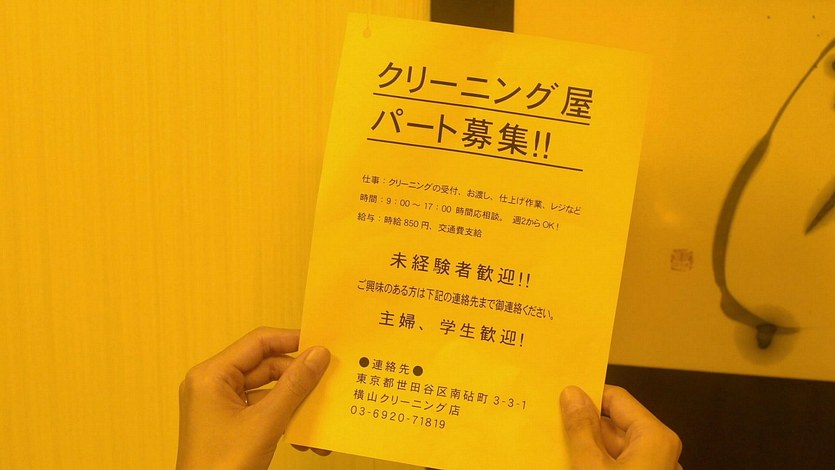 クリーニング屋
パート募集!!
仕事：クリーニングの受付、お渡し、仕上げ作業、レジなど
時間：9：00～17：00 時間応相談。 週2からOK！
給与：時給850円、交通費支給
未経験者歓迎!!
ご興味のある方は下記の連絡先まで御連絡ください。
主婦、学生歓迎!
●連絡先●
東京都世田谷区南砧町3-3-1
横山クリーニング店
03-6920-71819